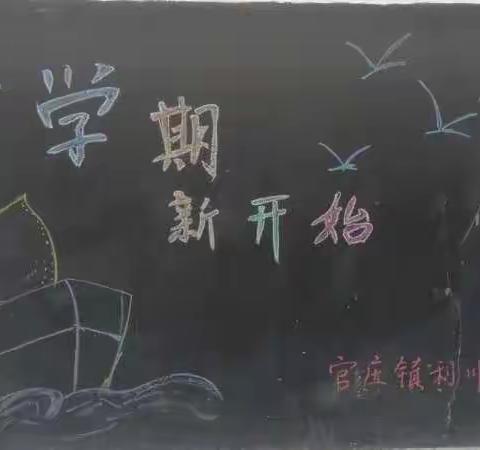 学期
新开始
官庄镇利川